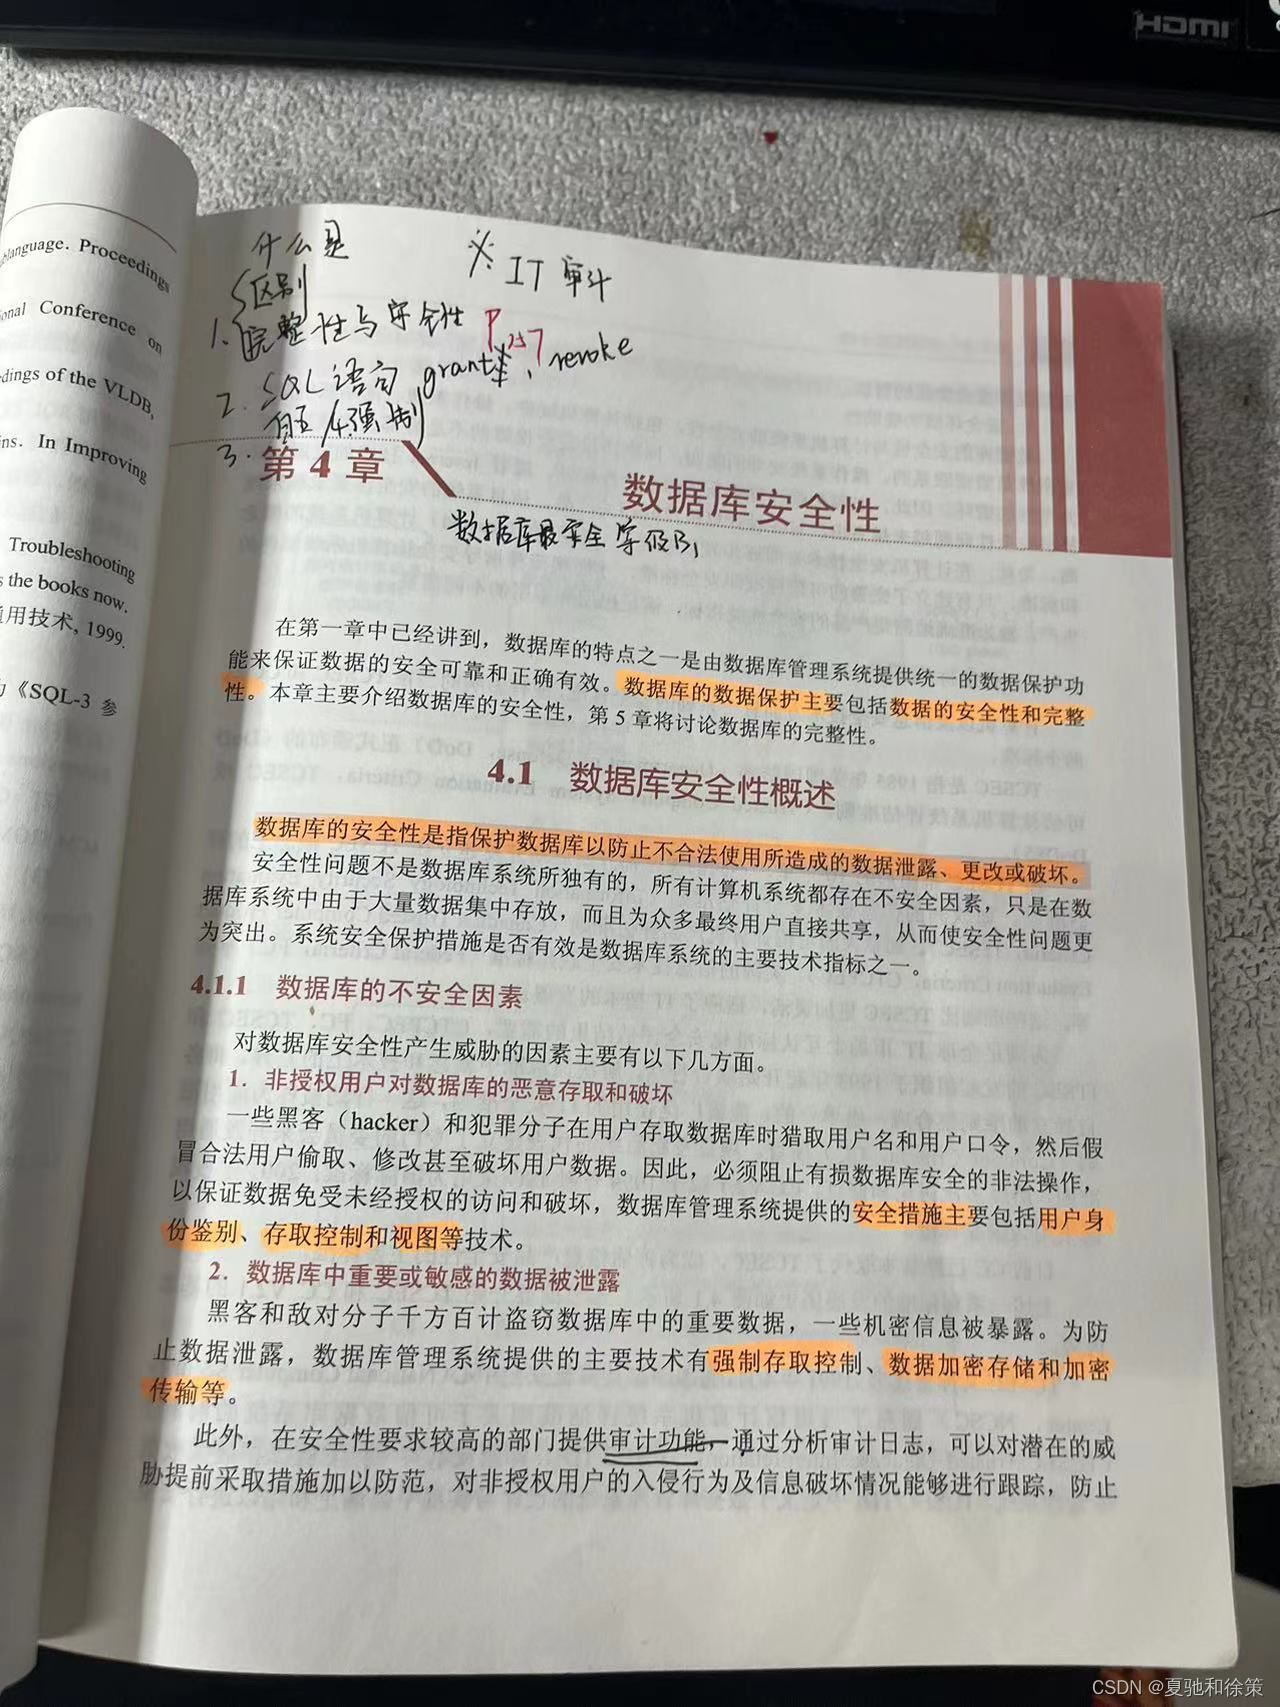 HDMI
language. Proceedings
onal Conference on
dings of the VLDB,
ns. In Improving
Troubleshooting
s the books now.
通用技术, 1999.
《SQL-3 参
什么是
区别
※ IT 审计
1. 完整性与安全性
P257
2. SQL语句 grant, revoke
3. 自主/强制
第 4 章
数据库安全性
数据库最安全等级B1
在第一章中已经讲到，数据库的特点之一是由数据库管理系统提供统一的数据保护功
能来保证数据的安全可靠和正确有效。数据库的数据保护主要包括数据的安全性和完整
性。本章主要介绍数据库的安全性，第 5 章将讨论数据库的完整性。
4.1 数据库安全性概述
数据库的安全性是指保护数据库以防止不合法使用所造成的数据泄露、更改或破坏。
安全性问题不是数据库系统所独有的，所有计算机系统都存在不安全因素，只是在数
据库系统中由于大量数据集中存放，而且为众多最终用户直接共享，从而使安全性问题更
为突出。系统安全保护措施是否有效是数据库系统的主要技术指标之一。
4.1.1 数据库的不安全因素
对数据库安全性产生威胁的因素主要有以下几方面。
1．非授权用户对数据库的恶意存取和破坏
一些黑客（hacker）和犯罪分子在用户存取数据库时猎取用户名和用户口令，然后假
冒合法用户偷取、修改甚至破坏用户数据。因此，必须阻止有损数据库安全的非法操作，
以保证数据免受未经授权的访问和破坏，数据库管理系统提供的安全措施主要包括用户身
份鉴别、存取控制和视图等技术。
2．数据库中重要或敏感的数据被泄露
黑客和敌对分子千方百计盗窃数据库中的重要数据，一些机密信息被暴露。为防
止数据泄露，数据库管理系统提供的主要技术有强制存取控制、数据加密存储和加密
传输等。
此外，在安全性要求较高的部门提供审计功能，通过分析审计日志，可以对潜在的威
胁提前采取措施加以防范，对非授权用户的入侵行为及信息破坏情况能够进行跟踪，防止
CSDN @夏驰和徐策